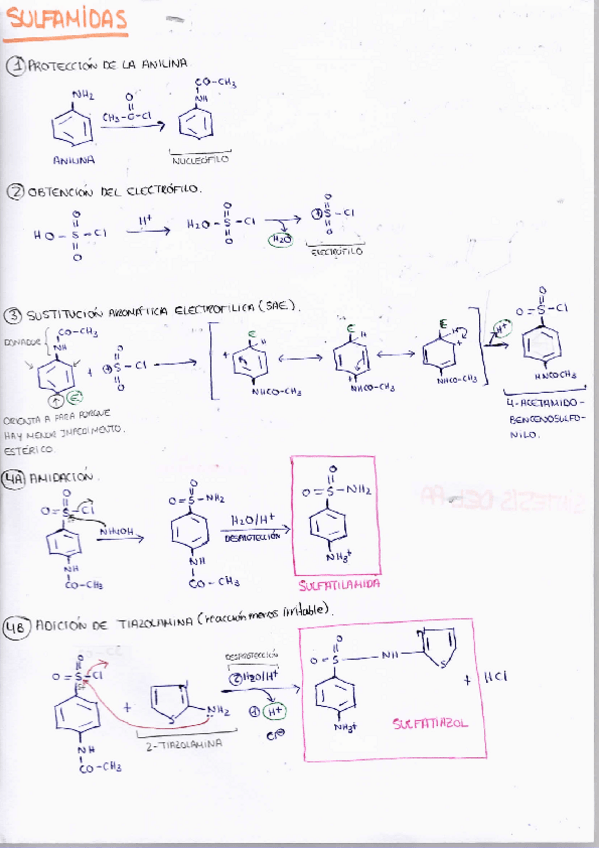 SULFAMIDAS
① PROTECCIÓN DE LA ANILINA
NH2
CH3-C-Cl
O
CO-CH3
NH
ANILINA
NUCLEÓFILO
② OBTENCIÓN DEL ELECTRÓFILO.
HO-S-Cl
O
O
H+
H2O-S-Cl
O
O
H2O
S-Cl
O
O
ELECTRÓFILO
③ SUSTITUCIÓN AROMÁTICA ELECTROFÍLICA (SAE).
CO-CH3
NH
DONADOR
+
S-Cl
O
O
E
H
NHCO-CH3
E
H
NHCO-CH3
E
H
NHCO-CH3
H+
O=S-Cl
O
NHCOCH3
ORIENTA A PARA PORQUE
HAY MENOR IMPEDIMENTO
ESTÉRICO.
4-ACETAMIDO-
BENCENOSULFO-
NILO.
④A AMIDACIÓN.
O=S-Cl
O
NH
CO-CH3
NH4OH
O=S-NH2
O
NH
CO-CH3
H2O/H+
DESPROTECCIÓN
O=S-NH2
O
NH3+
SULFATILAMIDA
④B ADICIÓN DE TIAZOLAMINA (reacción menos irritable).
O=S-Cl
O
NH
CO-CH3
+
S
NH2
2-TIAZOLAMINA
DESPROTECCIÓN
② H2O/H+
① H+
Cl⊖
O=S
O
NH
S
NH3+
SULFATIAZOL
+ HCl